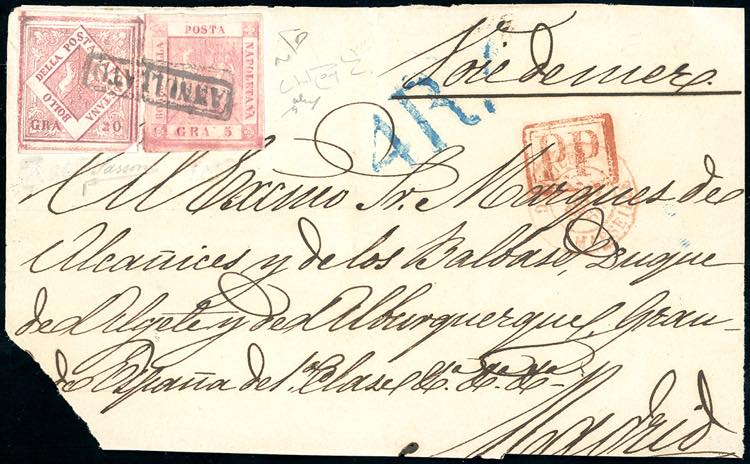 BOLLO DELLA POSTA NAPOLETANA
GRA 20
POSTA NAPOLETANA
GRA 5
ANNULLATO
4Rs
Voie de mer.
PP
Sassone
Al Excimo Sr. Marques de
Alcañices y de los Balbases, Duque
de Algete y de Alburquerque, Gran-
de España de 1ª Clase &ª &ª &ª
Madrid